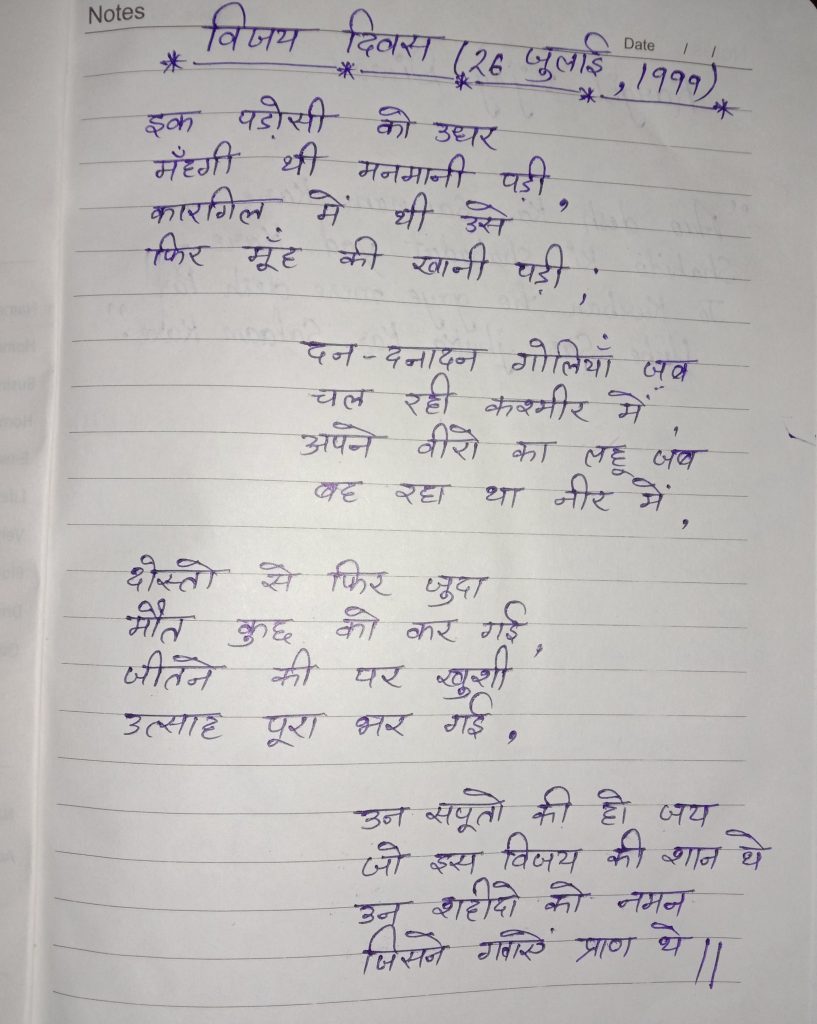 Notes
Date / /
विजय दिवस (26 जुलाई, 1999)
इक पड़ोसी को उधर
मँहगी थी मनमानी पड़ी,
कारगिल में थी उसे
फिर मूँह की खानी पड़ी;
दन-दनादन गोलियाँ जब
चल रही कश्मीर में,
अपने वीरो का लहू जब
बह रहा था नीर में,
दोस्तो से फिर जुदा
मौत कुछ को कर गई,
जीतने की पर खुशी
उत्साह पूरा भर गई,
उन सपूतो की हो जय
जो इस विजय की शान थे
उन शहीदो को नमन
जिसने प्राण थे ||